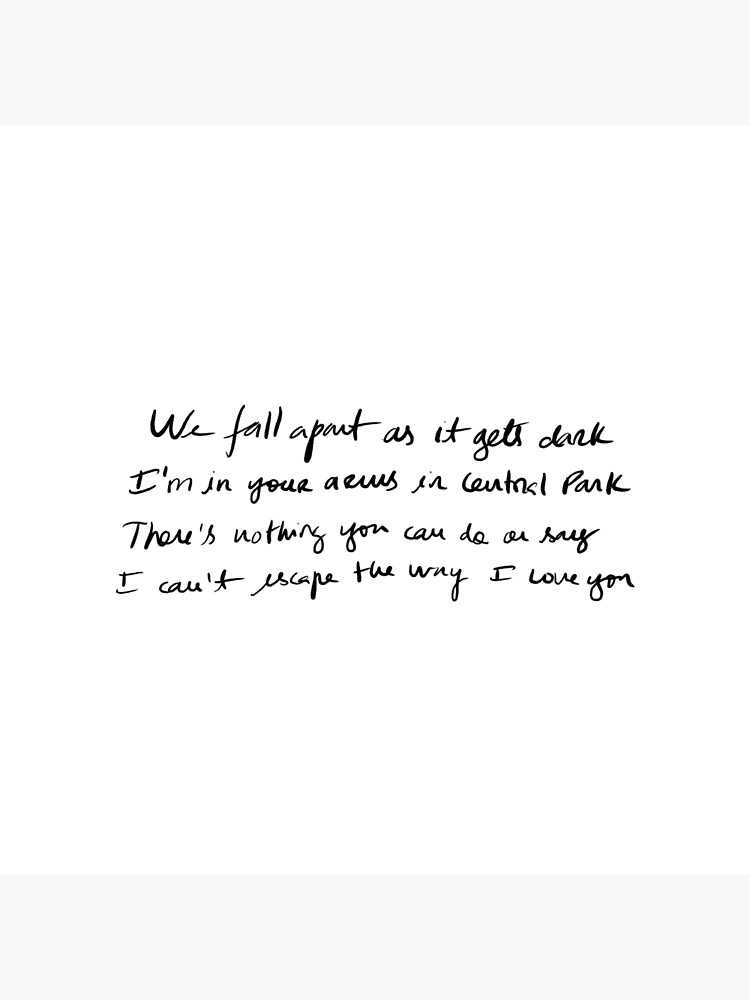 We fall apart as it gets dark
I'm in your arms in Central Park
There's nothing you can do or say
I can't escape the way I love you